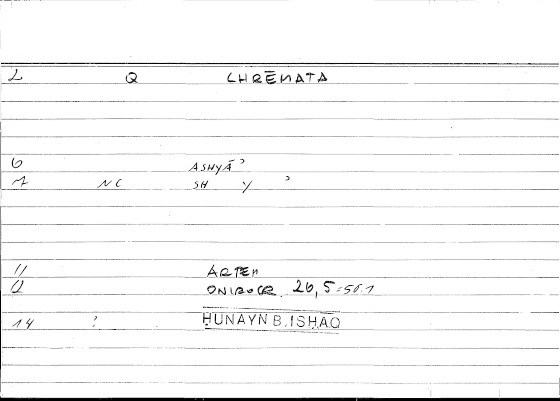 2 Q CHRĒMATA
6 ASHYĀʾ
7 NC SH Y ʾ
11 ARTEM
12 ONIROCR. 26,5=50.1
14 ? ḤUNAYN B. ISḤĀQ